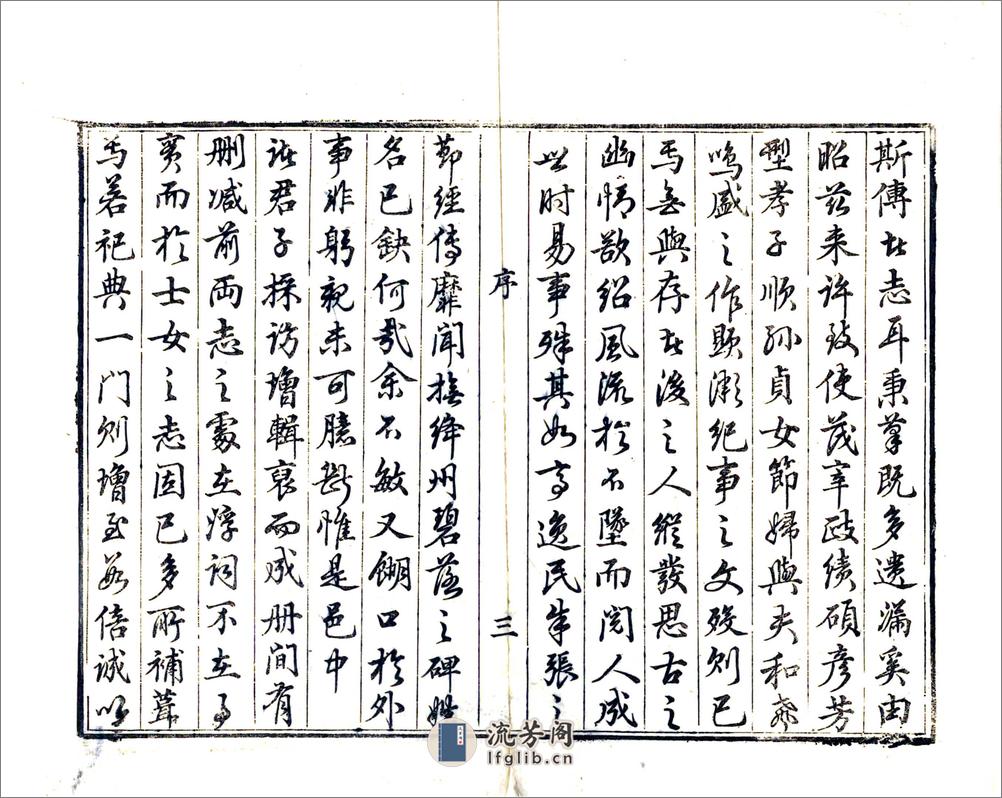 斯傳在志耳秉筆既多遺漏奚由
昭茲来許致使茂宰政績碩彥芳
型孝子順孫貞女節婦與夫和聲
鳴盛之作顯微紀事之文歿则已
焉無與存在後之人縱發思古之
幽情欲紹風流於不墜而閱人成
世时易事殊其如高逸民朱張之
序
三
節經傳靡聞撫絳州碧落之碑姓
名已缺何哉余不敏又餬口於外
事非躬親未可臆斷惟是邑中
諸君子採訪增輯裒而成册间有
刪减前両志之處在浮詞不在事
實而於士女之志固已多所補葺
焉若祀典一門则增至數倍誠以
流芳阁
lfglib.cn